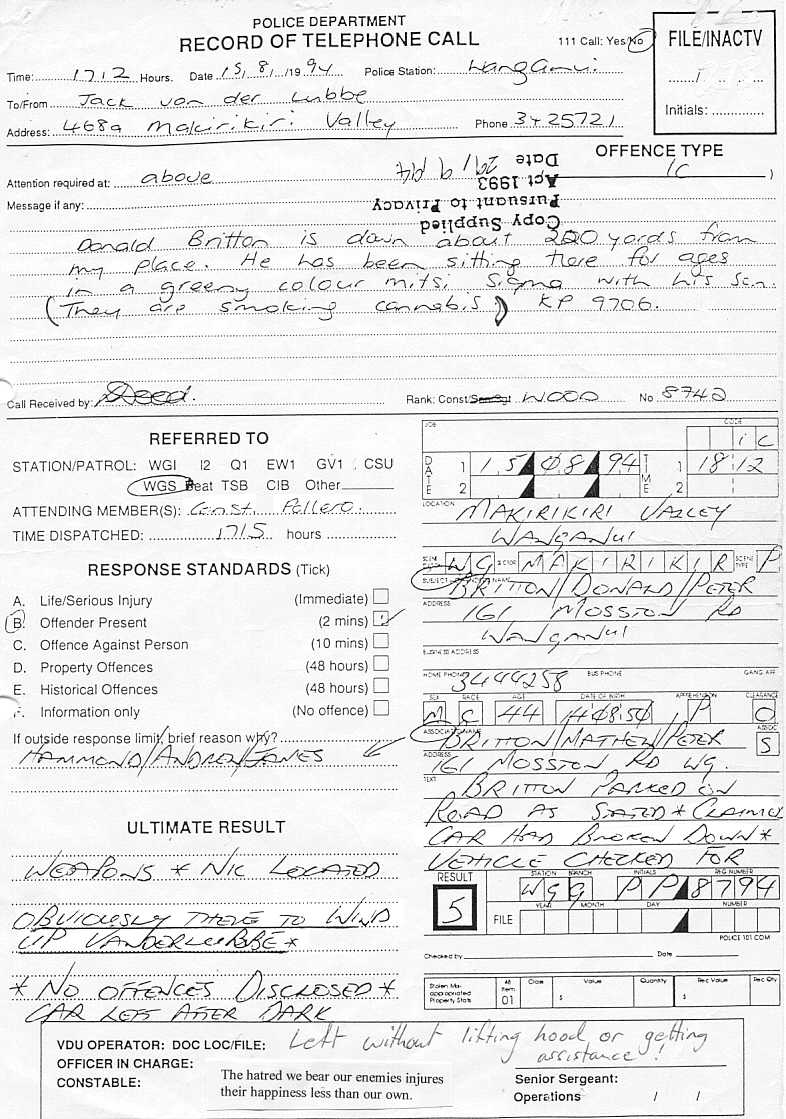 POLICE DEPARTMENT
RECORD OF TELEPHONE CALL
111 Call: Yes/No
FILE/INACTV
Time: 1712 Hours. Date 15/8/1994 Police Station: Wanganui
To/From Jack von der Lubbe
Initials:
Address: 468a Makirikiri Valley Phone 3425721
OFFENCE TYPE
1C
Attention required at: above
Message if any:
Copy Supplied
Pursuant to Privacy
Act 1993
Date
Donald Britton is down about 200 yards from
my place. He has been sitting there for ages
in a greeny colour mitsi Sigma with his son.
(They are smoking cannabis) KP 9706.
Call Received by: Rank: Const/Sen Sgt WOOD No 8742
REFERRED TO
STATION/PATROL: WGI I2 Q1 EW1 GV1 CSU
WGS Beat TSB CIB Other
ATTENDING MEMBER(S): Const.
TIME DISPATCHED: 1715 hours
RESPONSE STANDARDS (Tick)
A. Life/Serious Injury (Immediate)
B. Offender Present (2 mins)
C. Offence Against Person (10 mins)
D. Property Offences (48 hours)
E. Historical Offences (48 hours)
F. Information only (No offence)
If outside response limit, brief reason why?
HAMMOND/ANDREW/JAMES
ULTIMATE RESULT
WEAPONS * NIL LOCATED
OBVIOUSLY THERE TO WIND
UP VANDERLUBBE *
* NO OFFENCES DISCLOSED *
CAR LEFT AFTER DARK
JOB CODE
1C
DATE 1 15 08 94 TIME 1 1812
2 2
LOCATION
MAKIRIKIRI VALLEY
WANGANUI
WG SECTOR MAKIRIKIR SCENE TYPE P
BRITTON/DONALD/PETER
ADDRESS
161 MOSSTON RD
WANGANUI
BUSINESS ADDRESS
HOME PHONE 3444258 BUS PHONE GANG AFF
SEX RACE AGE DATE OF BIRTH APPREHENSION CLEARANCE
M C 44 140850 P O
BRITTON/MATHEW/PETER
ASSOC
S
ADDRESS
161 MOSSTON RD WG.
TEXT
BRITTON PARKED ON
ROAD AS STATED * CLAIMED
CAR HAD BROKEN DOWN *
VEHICLE CHECKED FOR
RESULT
5
STATION BRANCH INITIALS REG NUMBER
WG G PP 8794
FILE YEAR MONTH DAY NUMBER
POLICE 101 COM
Checked by Date
Stolen Mis-appropriated Property Stats
Item 01 Class Value $ Quantity Rec Value $ Rec Qty
VDU OPERATOR: DOC LOC/FILE: Left without lifting hood or getting
assistance!
OFFICER IN CHARGE:
CONSTABLE:
The hatred we bear our enemies injures
their happiness less than our own.
Senior Sergeant:
Operations / /